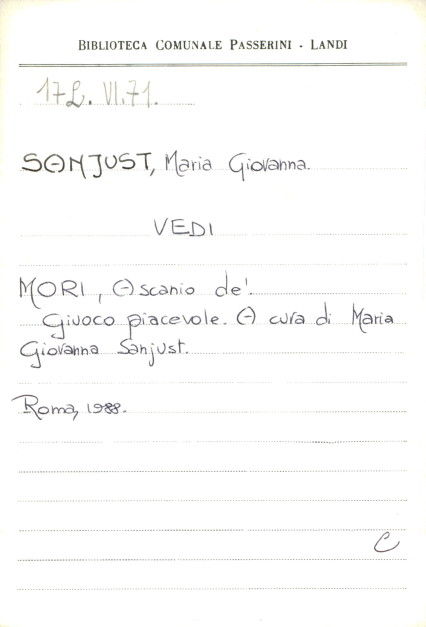 BIBLIOTECA COMUNALE PASSERINI - LANDI
17L. VI.71.
SANJUST, Maria Giovanna.
VEDI
MORI, Ascanio de'.
Giuoco piacevole. A cura di Maria
Giovanna Sanjust.
Roma, 1988.
C